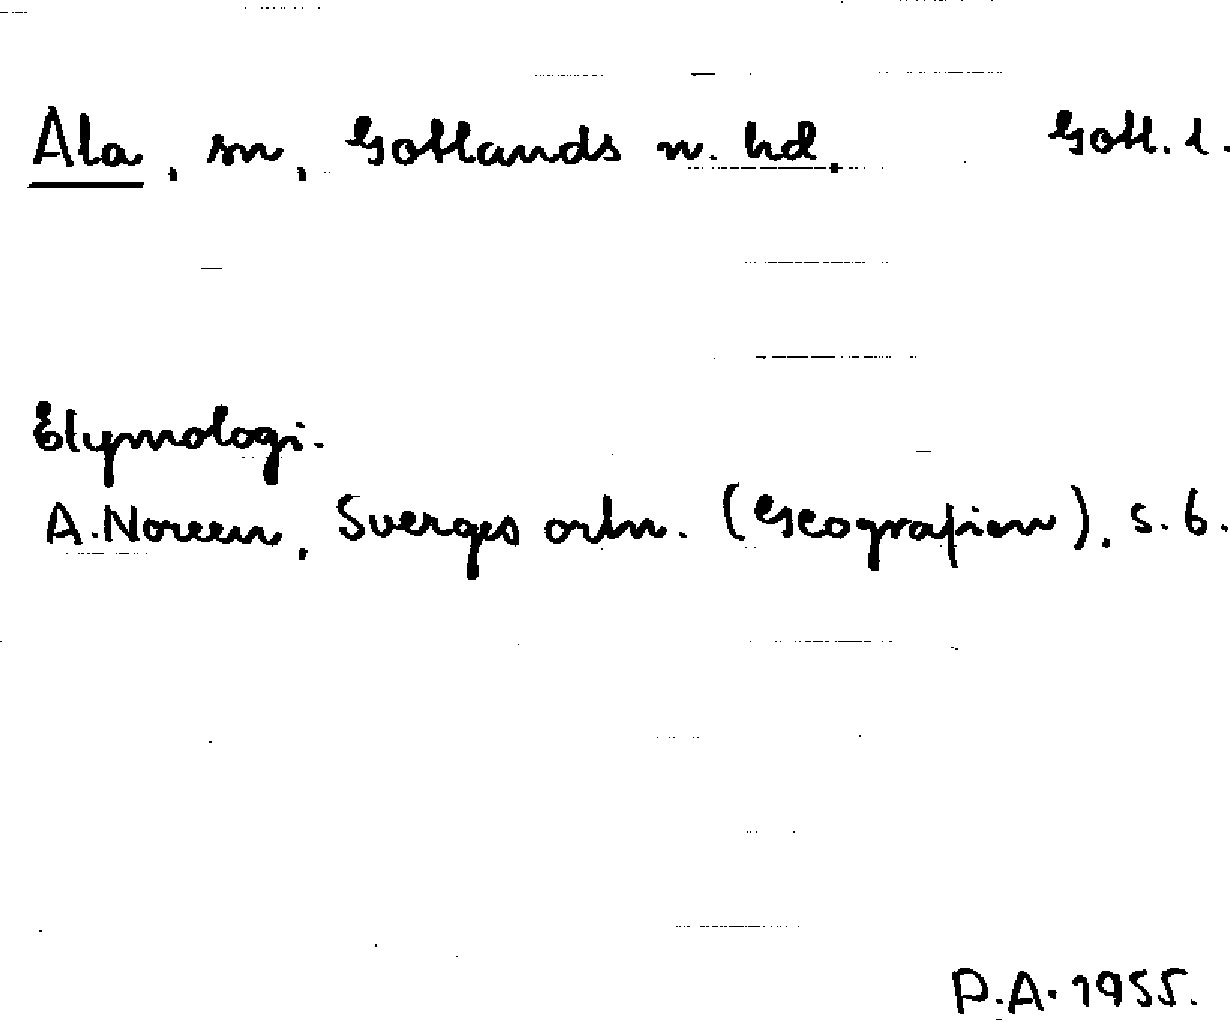 Ala, sn, Gotlands n. hd. Gotl. l.
Etymologi.
A. Noreen, Sveriges ortn. (Geografien), s. 6.
P.A. 1955.